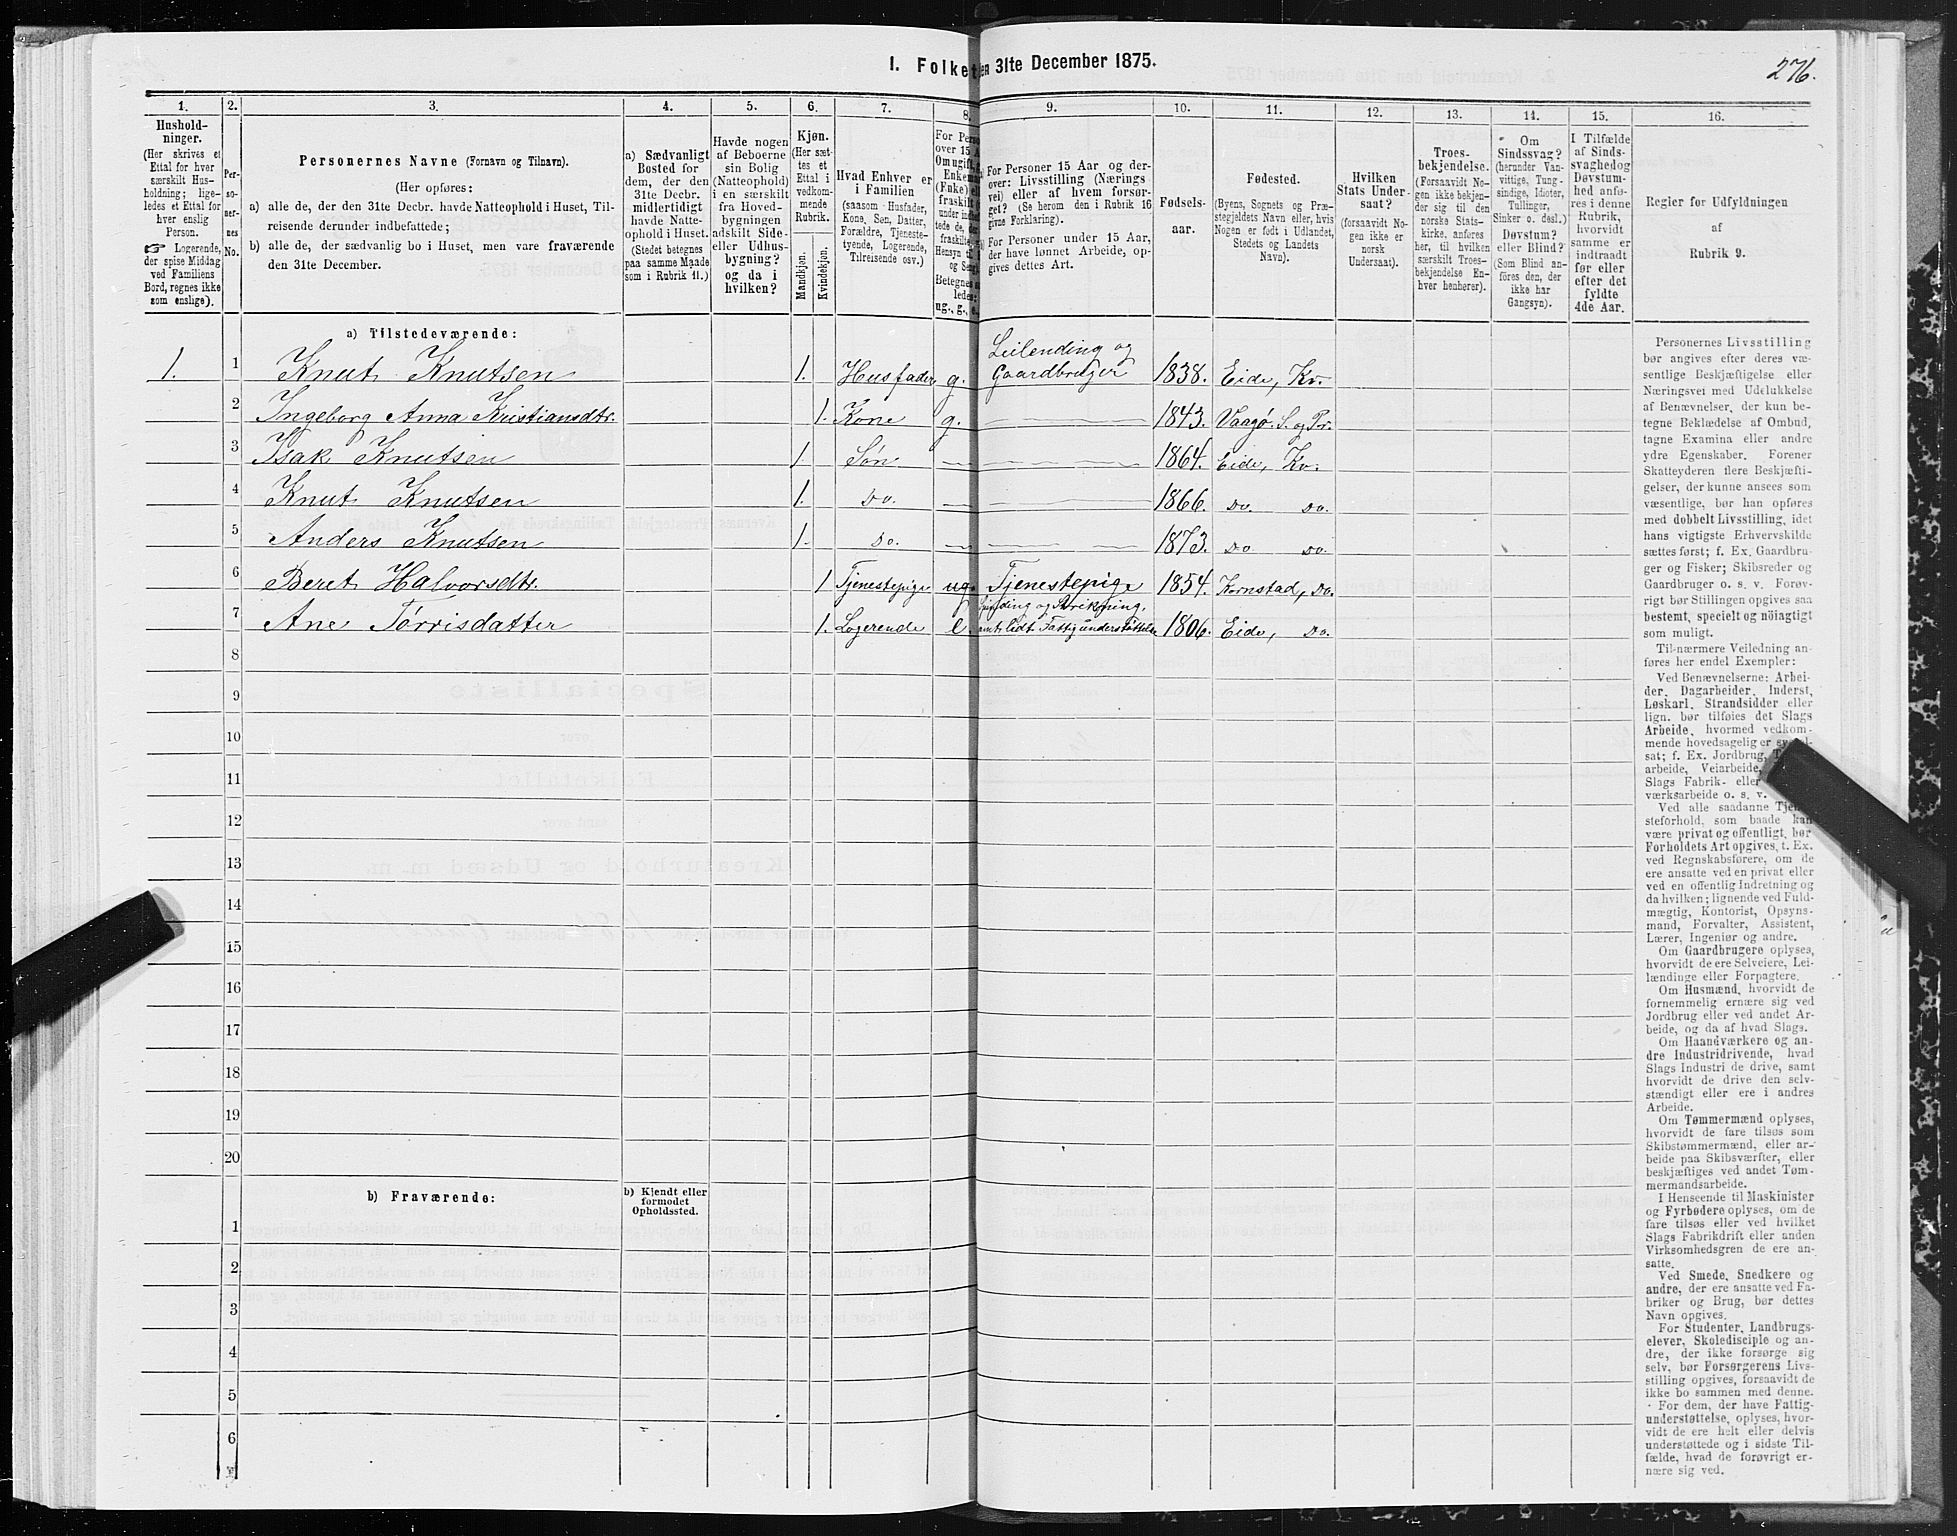 I. Folket
en 31te December 1875.
276.
1.
2.
3.
4.
5.
6.
7.
8.
9.
10.
11.
12.
13.
14.
15.
16.
Hushold-
ninger.
(Her skrives et
Ettal for hver
særskilt Hus-
holdning; lige-
ledes et Ettal for
hver enslig
Person.
☞ Logerende,
der spise Middag
ved Familiens
Bord, regnes ikke
som enslige).
Per-
so-
ner-
nes
No.
Personernes Navne (Fornavn og Tilnavn).
(Her opføres:
a) alle de, der den 31te Decbr. havde Natteophold i Huset, Til-
reisende derunder indbefattede;
b) alle de, der sædvanlig bo i Huset, men vare fraværende
den 31te December.
a) Sædvanligt
Bosted for
dem, der den
31te Decbr.
midlertidigt
havde Natte-
ophold i Huset.
(Stedet betegnes
paa samme Maade
som i Rubrik 11.)
Havde nogen
af Beboerne
sin Bolig
(Natteophold)
i en særskilt
fra Hoved-
bygningen
adskilt Side-
eller Udhus-
bygning?
og da i
hvilken?
Kjøn.
(Her sæt-
tes et
Ettal i
vedkom-
mende
Rubrik.
Mandkjøn.
Kvindekjøn.
Hvad Enhver er
i Familien
(saasom Husfader,
Kone, Søn, Datter,
Forældre, Tjeneste-
tyende, Logerende,
Tilreisende osv.)
For Perso
over 15 A
Om ugift,
Enkema
(Enke) el
fraskilt
under indbef
tede de,
fraskilte,
Hensyn til
og Seng
Betegnes
ledes:
ug., g., e.
For Personer 15 Aar og der-
over: Livsstilling (Nærings
vei) eller af hvem forsør-
get? (Se herom den i Rubrik 16
givne Forklaring).
For Personer under 15 Aar,
der have lønnet Arbeide, op-
gives dettes Art.
Fødsels-
aar.
Fødested.
(Byens, Sognets og Præ-
stegjeldets Navn eller, hvis
Nogen er født i Udlandet,
Stedets og Landets
Navn).
Hvilken
Stats Under-
saat?
(forsaavidt No-
gen ikke er
norsk
Undersaat).
Troes-
bekjendelse.
(Forsaavidt No-
gen ikke bekjen-
der sig til den
norske Stats-
kirke, anføres
her, til hvilken
særskilt Troes-
bekjendelse En-
hver henhører).
Om
Sindssvag?
(herunder Van-
vittige, Tung-
sindige, Idioter,
Tullinger,
Sinker o. desl.)
Døvstum?
eller Blind?
(Som Blind an-
føres den, der
ikke har
Gangsyn).
I Tilfælde
af Sinds-
svaghed og
Døvstum-
hed anfø-
res i denne
Rubrik,
hvorvidt
samme er
indtraadt
før eller
efter det
fyldte
4de Aar.
Regler for Udfyldningen
af
Rubrik 9.
a) Tilstedeværende:
1. 1 Knut Knutsen 1. Husfader g. Leilending og Gaardbruger 1838. Eide, Kv.
2 Ingeborg Anna Kristiansdtr. 1. Kone g. — 1843. Vaagø. S. og Pr.
3 Isak Knutsen 1 Søn — — 1864. Eide, Kv.
4 Knut Knutsen 1. Do. — — 1866. Do. Do.
5 Anders Knutsen 1. Do. — — 1873. Do Do.
6 Beret Halvorsdtr. 1 Tjenestepige ug. Tjenestepige 1854. Kornstad, Do.
7 Ane Tørrisdatter 1. Logerende e. Spinding og Strikning, samt lidt Fattigunderstøttelse 1806. Eide, Do.
8
9
10
11
12
13
14
15
16
17
18
19
20
b) Fraværende:
b) Kjendt eller
formodet
Opholdssted.
1
2
3
4
5
6
Personernes Livsstilling
bør angives efter deres væ-
sentlige Beskjæftigelse eller
Næringsvei med Udelukkelse
af Benævnelser, der kun be-
tegne Beklædelse af Ombud,
tagne Examina eller andre
ydre Egenskaber. Forener
Skatteyderen flere Beskjæfti-
gelser, der kunne ansees som
væsentlige, bør han opføres
med dobbelt Livsstilling, idet
hans vigtigste Erhvervskilde
sættes først; f. Ex. Gaardbru-
ger og Fisker; Skibsreder og
Gaardbruger o. s. v. Forøv-
rigt bør Stillingen opgives saa
bestemt, specielt og nöiagtigt
som muligt.
Til nærmere Veiledning an-
føres her endel Exempler:
Ved Benævnelserne: Arbei-
der, Dagarbeider, Inderst,
Løskarl, Strandsidder eller
lign. bør tilføies det Slags
Arbeide, hvormed vedkom-
mende hovedsagelig er syssel-
sat; f. Ex. Jordbrug, T
arbeide, Veiarbeide,
Slags Fabrik- eller
værksarbeide o. s. v.
Ved alle saadanne Tjene-
steforhold, som baade kan
være privat og offentligt, bør
Forholdets Art opgives, t. Ex.
ved Regnskabsførere, om de
ere ansatte ved en privat eller
ved en offentlig Indretning og
da hvilken; lignende ved Fuld-
mægtig, Kontorist, Opsyns-
mand, Forvalter, Assistent,
Lærer, Ingeniør og andre.
Om Gaardbrugere oplyses,
hvorvidt de ere Selveiere, Lei-
lændinge eller Forpagtere.
Om Husmænd, hvorvidt de
fornemmelig ernære sig ved
Jordbrug eller ved andet Ar-
beide, og da af hvad Slags.
Om Haandværkere og an-
dre Industridrivende, hvad
Slags Industri de drive, samt
hvorvidt de drive den selv-
stændigt eller ere i andres
Arbeide.
Om Tømmermænd oplyses,
hvorvidt de fare tilsøs som
Skibstømmermænd, eller ar-
beide paa Skibsværfter, eller
beskjæftiges ved andet Tøm-
mermandsarbeide.
I Henseende til Maskinister
og Fyrbødere oplyses, om de
fare tilsøs eller ved hvilket
Slags Fabrikdrift eller anden
Virksomhedsgren de ere an-
satte.
Ved Smede, Snedkere og
andre, der ere ansatte ved Fa-
briker og Brug, bør dettes
Navn opgives.
For Studenter, Landbrugs-
elever, Skoledisciple og an-
dre, der ikke forsørge sig
selv, bør Forsørgerens Livs-
stilling opgives, forsaavidt de
ikke bo sammen med denne.
For dem, der have Fattig-
understøttelse, oplyses, hvor-
vidt de ere helt eller delvis
understøttede og i sidste Til-
fælde, hvad de forøvrigt er-
nære sig ved.